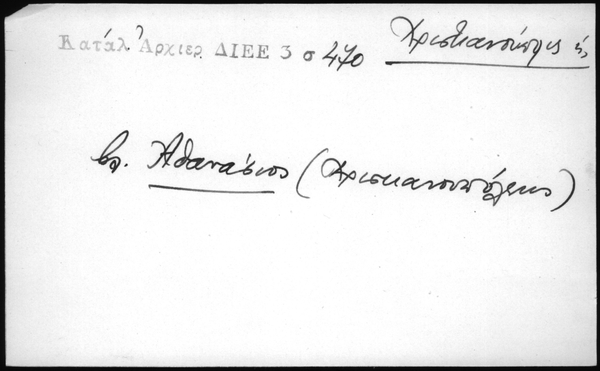 Κατάλ Ἀρχιερ ΔΙΕΕ 3 σ 470 Χριστιανούπολις ἡ
βλ. Ἀθανάσιος (Χριστιανουπόλεως)